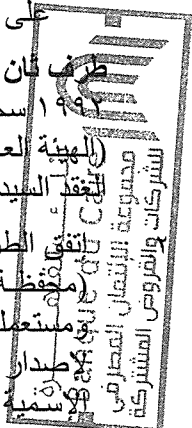 على
طرف ثان
١٩٩٢ سج
(الهيئة الع
العقد السيد
اتفق الط
(محفظة
مستعملة
إصدار
الإسمية
مجموعة الإئتمان المصرفى
للشركات والقروض المشتركة
Banque du Caire